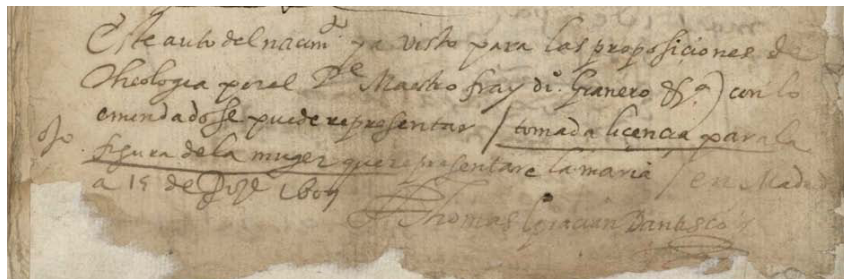 Este auto del nacimto ya visto para las proposiciones de
theologia por el Pe Maestro fray di.o Granero &ª) con lo
emendado se puede representar / tomada licencia para la
ojo figura de la muger que representare la maria / en Madrid
a 15 de 1609
Thomas Gracian Dantisco